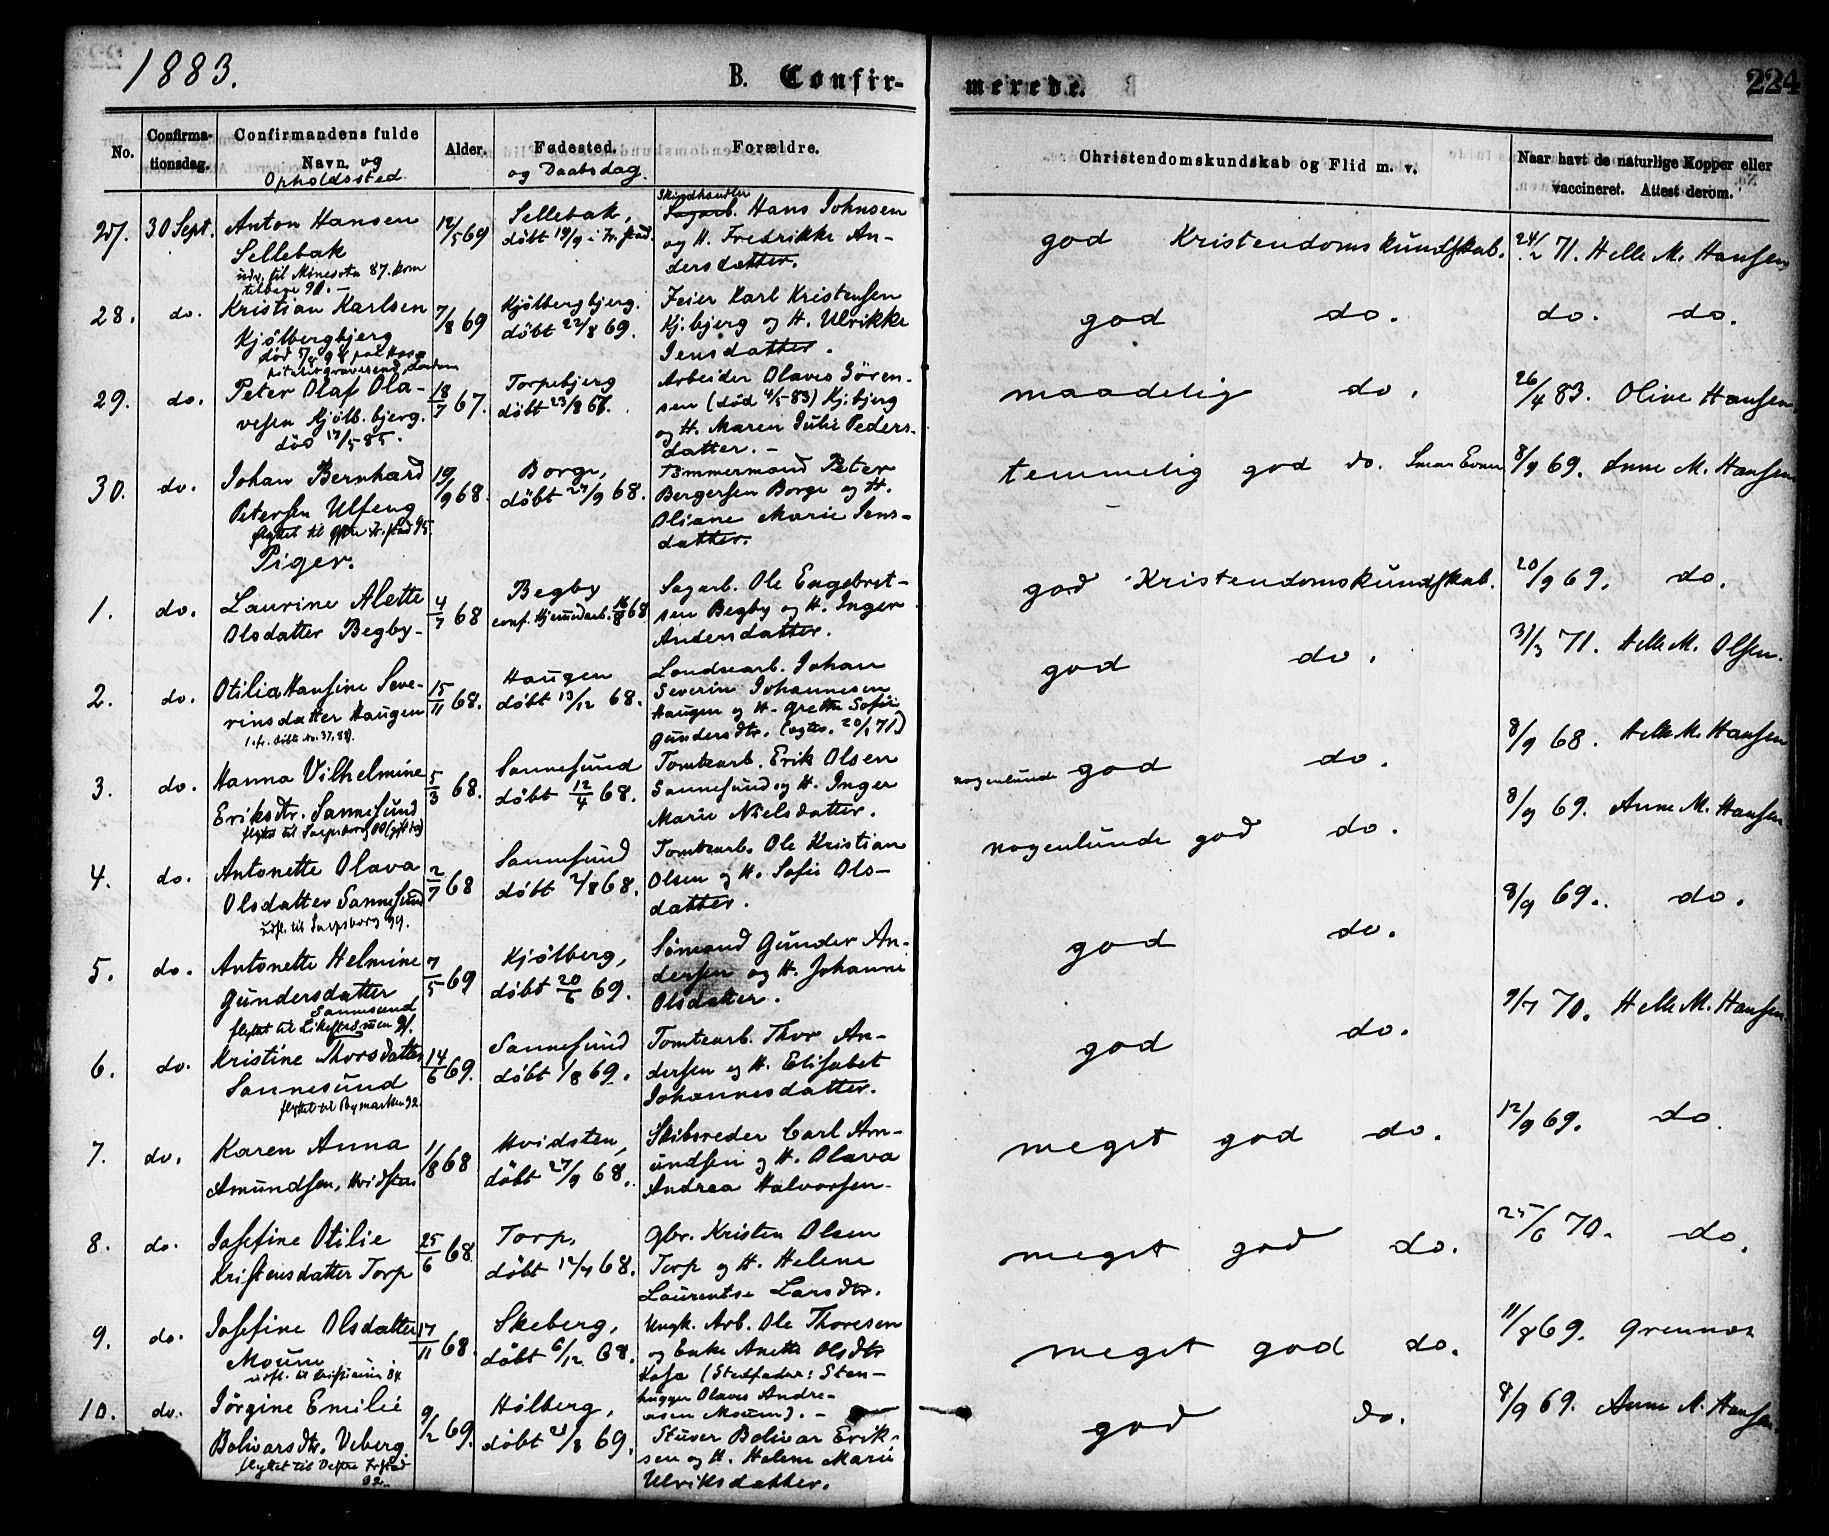 1883.
B. Confir-
merede.
224
No.
Confirma-
tionsdag.
Confirmandens fulde
Navn. og
Opholdssted
Alder.
Fødested.
og Daabsdag.
Forældre.
Christendomskundskab og Flid m. v.
Naar havt de naturlige Kopper eller
vaccineret. Attest derom.
27. 30 Sept. Anton Hansen
Sellebak
udv. til Minesota 87. kom
tilbage 90. -
12/5 69
Sellebak,
døbt 19/9 i Fr.stad.
Skindhandler
Sagarb. Hans Johnsen
og H. Fredrikke An-
dersdatter.
god Kristendomskundskab.
24/2 71. Helle M. Hansen
28. do. Kristian Karlsen
Kjølbergbjerg
7/8 69
Kjølbergbjerg.
døbt 22/8 69.
Feier Karl Kristensen
Kj.bjerg og H. Ulrikke
Jensdatter.
god do.
do. do.
29. do. Peter Olaf Ola-
vesen Kjølb.bjerg.
død 17/5 85.
18/7 67.
Torpebjerg
døbt 23/8 68.
Arbeider Olaves Søren-
sen (død 4/5 83) Kj.bjerg
og H. Maren Julie Peders-
datter. -
maadelig do.
26/4 83. Olive Hansen.
30. do. Johan Bernhard
Petersen Ulfeng
flyttet til Østre Fr.stad 95.
19/9 68.
Borge,
døbt 27/9 68.
Tømmermand Peter
Bergersen Borge og H.
Oliane Marie Jens-
datter.
temmelig god do. Smaa Evner
8/9 69. Anne M. Hansen
Piger.
1. do. Laurine Alette
Olsdatter Begby -
4/7 68
Begby
conf. Hjemmedøb. 16/8 68
Sagarb. Ole Engebret-
sen Begby og H. Inger
Andersdatter.
god Kristendomskundskab.
20/9 69. do.
2. do. Otilia Hansine Seve-
rinsdatter Haugen
15/11 68.
Haugen
døbt 13/12 68.
Londsearb. Johan
Severin Johannesen
Haugen og H. Grethe Sofie
Gundersdtr.
god do.
31/3 71. Helle M. Olsen.
3. do. Hanna Vilhelmine
Eriksdtr. Sannesund
flyttet til Sarpsborg 00
5/3 68.
Sannesund
døbt 12/4 68.
Tomtearb. Erik Olsen
Sannesund og H. Inger
Marie Nielsdatter.
nogenlunde god do.
8/9 68. Helle M. Hansen
4. do. Antonette Olava
Olsdatter Sannesund
udfl. til Sarpsborg 99.
2/7 68
Sannesund
døbt 2/8 68.
Tomtearb. Ole Kristian
Olsen og H. Sofie Ols-
datter.
nogenlunde god do.
8/9 69. Anne M. Hansen.
5. do. Antonette Helmine
Gundersdatter
Sannesund
7/5 69
Kjølberg,
døbt 20/6 69.
Sømand Gunder An-
dersen og H. Johanne
Olsdatter.
god do.
8/9 69. do.
6. do. Kristine Thorsdatter
Sannesund
flyttet til Bymarken 92.
14/6 69.
Sannesund
døbt 1/8 69.
Tomtearb. Thor An-
dersen og H. Elisabet
Johannesdatter.
god do.
9/7 70. Helle M. Hansen.
7. do. Karen Anna
Amundsen, Hvidsten
1/8 68
Hvidsten,
døbt 27/9 68.
Skibsreder Carl Am-
undsen og H. Olava
Andrea Halvorsen.
meget god do.
12/9 69. do.
8. do. Josefine Otilie
Kristensdatter Torp
25/6 68
Torp,
døbt 12/7 68.
Gbr. Kristen Olsen
Torp og H. Helene
Laurentse Larsdtr.
meget god do.
25/6 70. do.
9. do. Josefine Olsdatter
Moum
udfl. til Kristiania 84.
17/11 68.
Skeberg,
døbt 6/12 68.
Ungk. Arb. Ole Thoresen
og Enke Anette Olsdtr
(Stedfader: Sten-
hugger Olaves Andre-
asen Moum). -
meget god do.
11/8 69.
10. do. Jørgine Emilie
Bolivarsdtr. Veberg.
flyttet til Vestre Frstad
92.
9/2 69.
Hølberg,
døbt 21/3 69.
Stuver Bolivar Erik-
sen og H. Helene Marie
Ulriksdatter.
god do.
8/9 69. Anne M. Hansen.